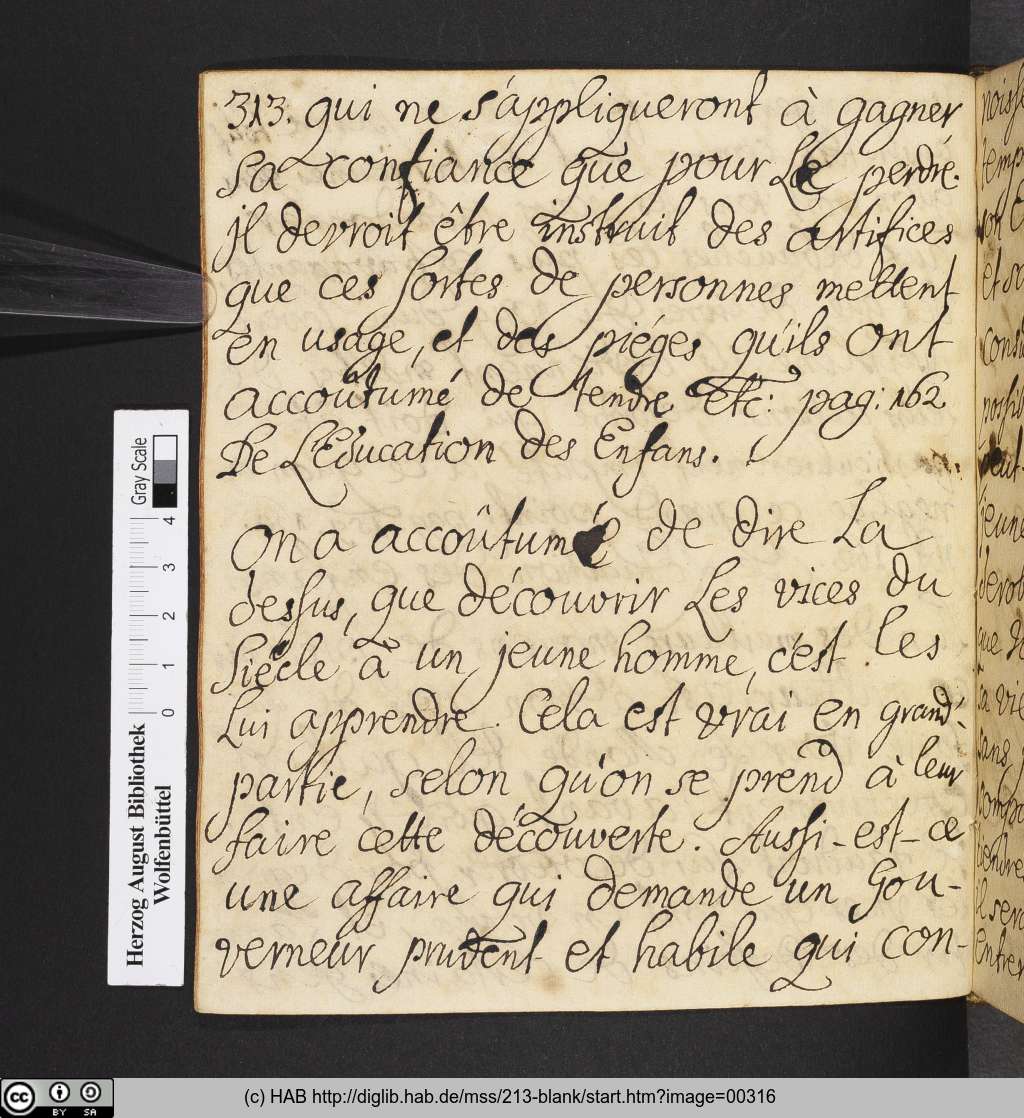 313. qui ne s'appliqueront à gagner
sa confiance que pour Le perdre.
jl devroit être instruit des artifices
que ces sortes de personnes mettent
en usage, et des piéges qu'ils ont
accoûtumé de tendre etc: pag: 162
De L'Education des Enfans.
On a accoûtumé de dire La
dessus, que découvrir Les vices du
Siécle à un jeune homme, c'est les
Lui apprendre. Cela est vrai en grand'-
partie, selon qu'on se prend à leur
faire cette découverte. Aussi-est-ce
une affaire qui demande un Gou-
verneur prudent et habile qui con-
Herzog August Bibliothek
Wolfenbüttel
0 1 2 3 4
Gray Scale
et so
jeune
que de
sa vie
sans
entrer
cc BY SA
(c) HAB http://diglib.hab.de/mss/213-blank/start.htm?image=00316